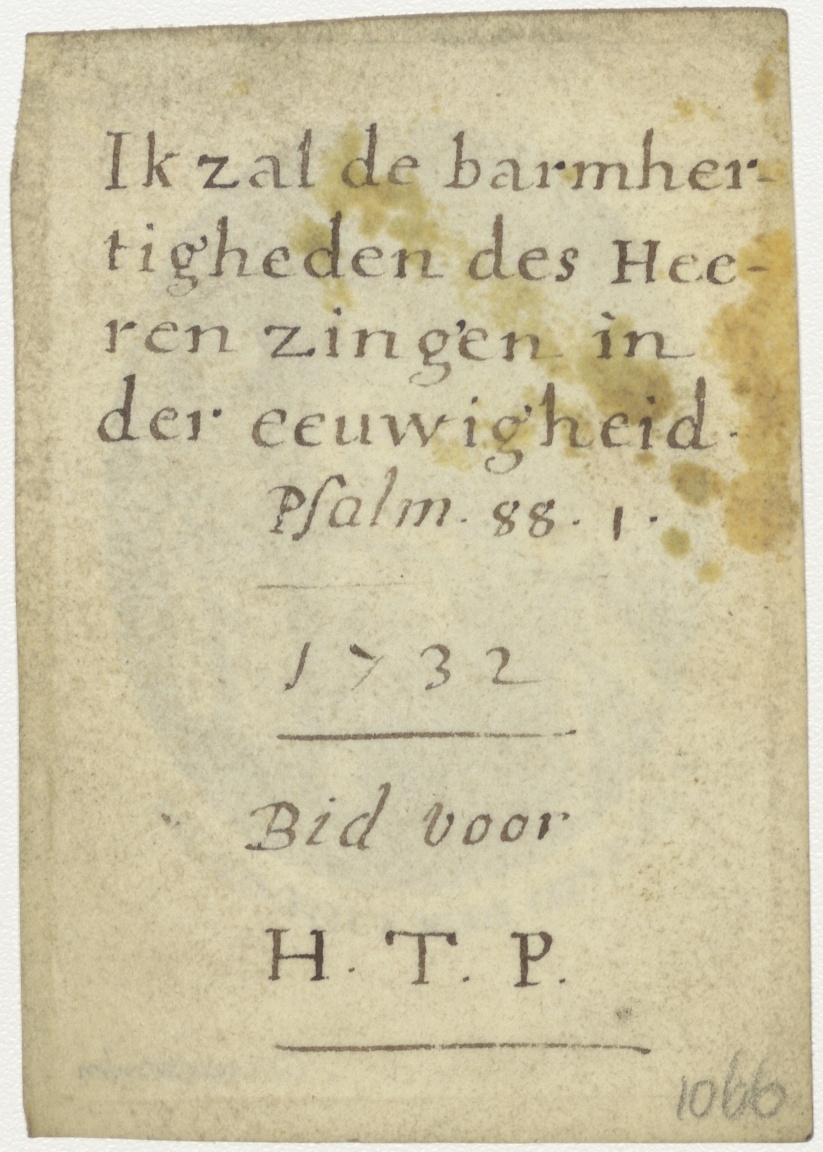 Ik zal de barmher-
tigheden des Hee-
ren zingen in
der eeuwigheid.
Psalm. 88. 1.
1732
Bid voor
H. T. P.
1066